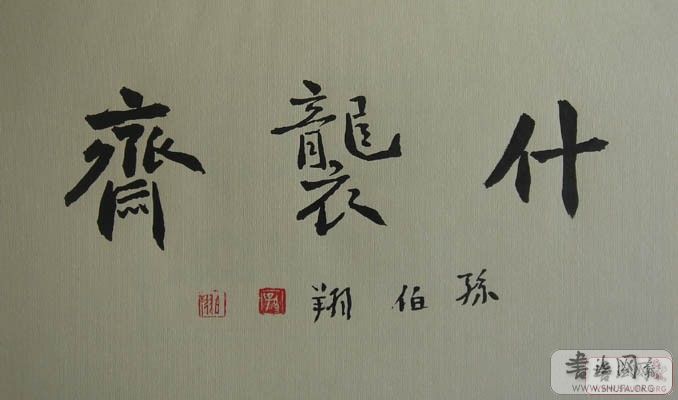 什襲齋
孫伯翔
书法网
WWW.SHUFA.ORG